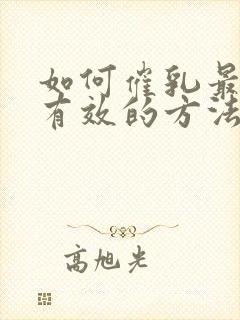 如何催乳最
有效的方法
高旭光